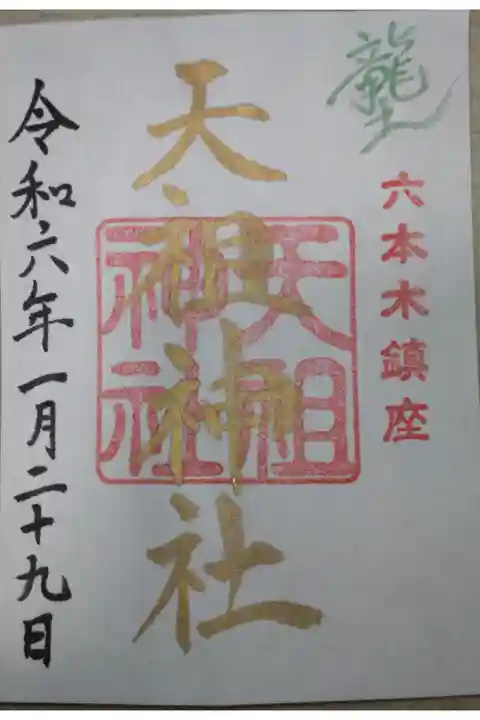 龍土
六本木鎮座
天祖神社
天祖
神社
令和六年一月二十九日